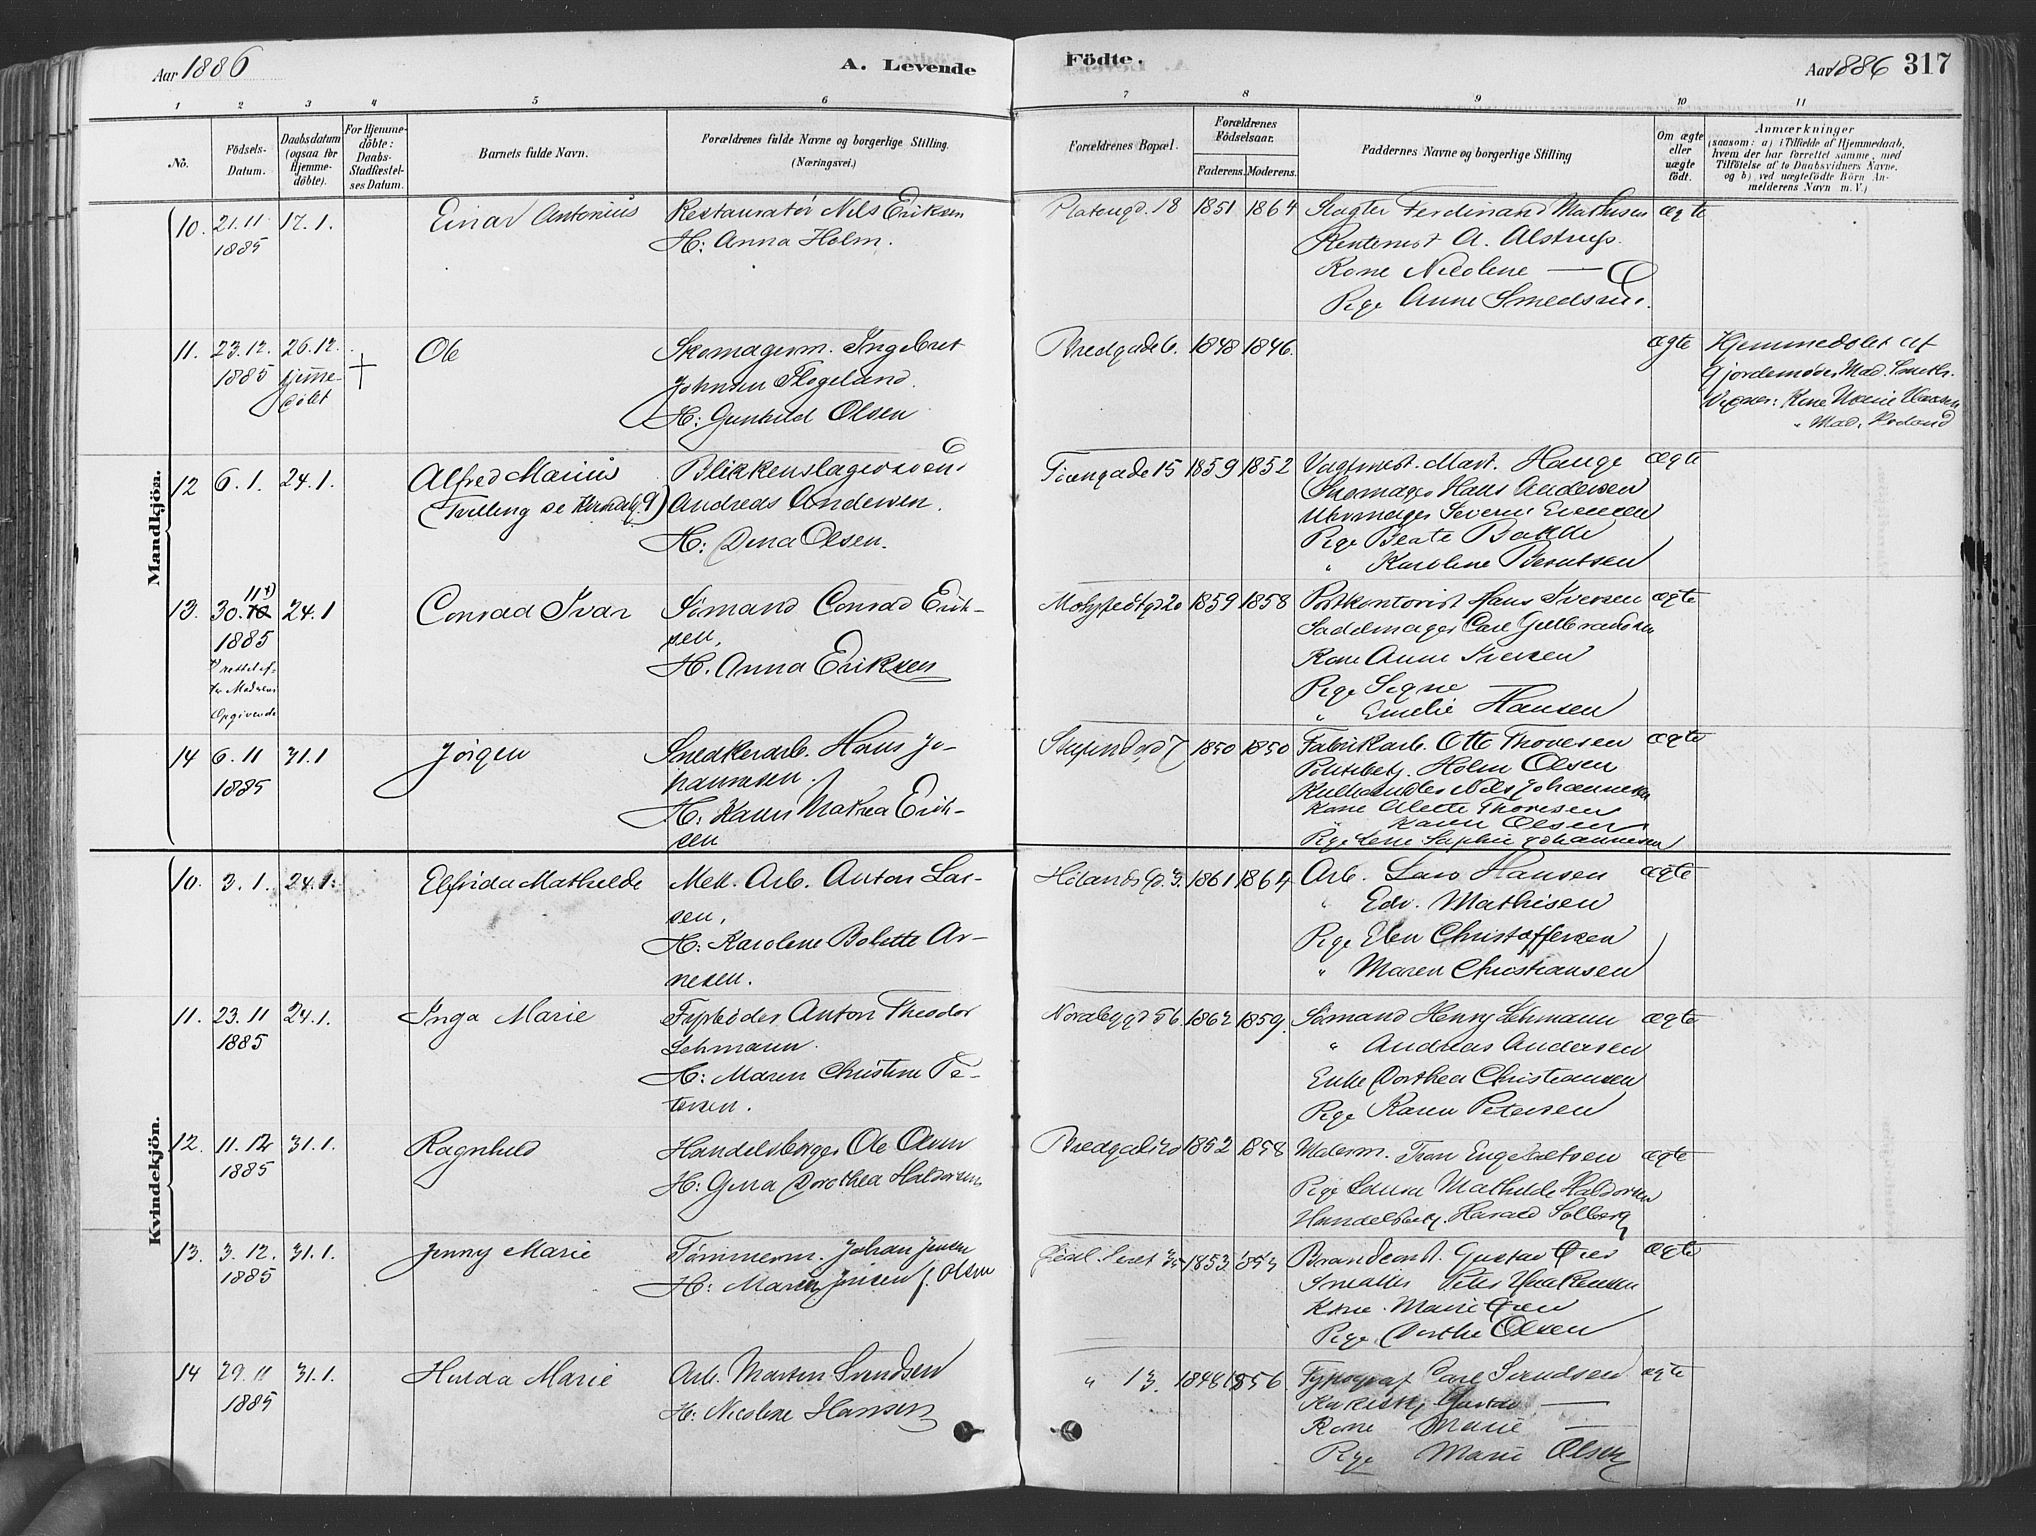 Aar 1886
A. Levende
Födte.
Aar 1886 317
1 2 3 4 5 6 7 8 9 10 11
No.
Födsels-Datum.
Daabsdatum (ogsaa for Hjemme-döbte).
For Hjemme-döbte: Daabs-Stadfæstelses Datum.
Barnets fulde Navn.
Forældrenes fulde Navne og borgerlige Stilling.
(Næringsvei.)
Forældrenes Bopæl.
Forældrenes Födselsaar.
Faderens. Moderens.
Faddernes Navne og borgerlige Stilling
Om ægte eller uægte födt.
Anmærkninger
(saasom: a) i Tilfælde af Hjemmedaab,
hvem der har forrettet samme, med
Tilföielse af to Daabsvidners Navne.
og b) ved uægtefödte Börn An-
melderens Navn m. V.)
Mandkjön.
10. 21.11 1885 17.1. Einar Antonius
Restauratør Nils Eriksen
H: Anna Holm.
Platougd. 18 1851 1864
Slagter Ferdinand Mathisen
Rentenist A. Alstrup.
Kone Nicoline —
Pige Anne Smedsrud.
ægte
11. 23.12. 1885 26.12. hjemme-døbt † Ole
Skomagerm. Ingebret
Johnsen
H: Gunhild Olsen
Bredgade 6. 1848 1846.
ægte
Hjemmedøbt af
Gjordemoder Mad. Smith.
Kone Marie Hansen
" Mad.
12 6.1. 24.1. Alfred Marius
(Tvilling se Kvindekj. 9)
Blikkenslagersvend
Andreas Andersen.
H: Dina Olsen.
Tirengade 15 1859 1852
Vagtmest. Mart. Hauge
Skomager Hans Andersen
Uhrmager Severin Evensen
Pige Beate Bakke
" Karoline Berntsen
ægte
13. 30.10 11 1885 24.1 Conrad Ivar
rettet ef-
ter Modrens
Opgivende
Sömand Conrad Erik-
sen.
H. Anna Eriksen
1859 1858
Postkontorist Hans Iversen
Sadelmager Carl Gulbrandsen
Kone Anne Iversen
Pige Signe
" Emelie Hansen
ægte
14 6.11 1885 31.1 Jörgen
Snedkerarb. Hans Jo-
hannesen.
H: Karen Mathea Erik-
sen
7 1850 1850
Fabrikarb. Otto Thoresen
Politibetj. Holm Olsen
Kulhandler Nils Johannesen
Kone Alette Thoresen
" Karen Olsen
Pige Lene Sophie Johannesen
ægte
Kvindekjön.
10. 3.1. 24.1. Elfrida Mathilde
Mek. Arb. Anton Lar-
sen.
H: Karoline Bolette Ar-
nesen.
1861 1864
Arb. Lars Hansen
" Edv. Mathisen
Pige Elen Christoffersen
" Maren Christiansen
ægte
11. 23.11 1885 24.1. Inga Marie
Fyrbøder Anton Theodor
Lehmann.
H: Maren Christine Pe-
tersen.
Nordbygd 56. 1862 1859.
Sömand Henry Lehmann
" Andreas Andersen
Enke Dorthea Christiansen
Pige Karen Petersen
ægte
12. 11.12 1885 31.1. Ragnhild
Handelsborger Ole Olsen
H: Gina Dorothea Haldorsen
Bredgade 20 1852 1858
Malerm. Tron Engebretsen
Pige Laura Mathilde Haldorsen
Handelsbetj. Harald Solberg
ægte
13. 3.12. 1885 31.1. Jenny Marie
Tømmerm. Johan Jensen
H: Maren Jensen f. Olsen
1853
Brandconst. Gustav Øren
Peter Haakensen
Kone Marie Øren
Pige Dorthe Olsen
ægte
14 29.11 1885 31.1. Hulda Marie
Arb. Martin Svendsen
H: Nicoline Hansen
" 13. 1848 1856.
Typograf Carl Svendsen
Gustav —
Kone Marie —
Pige Marie Olsen
ægte